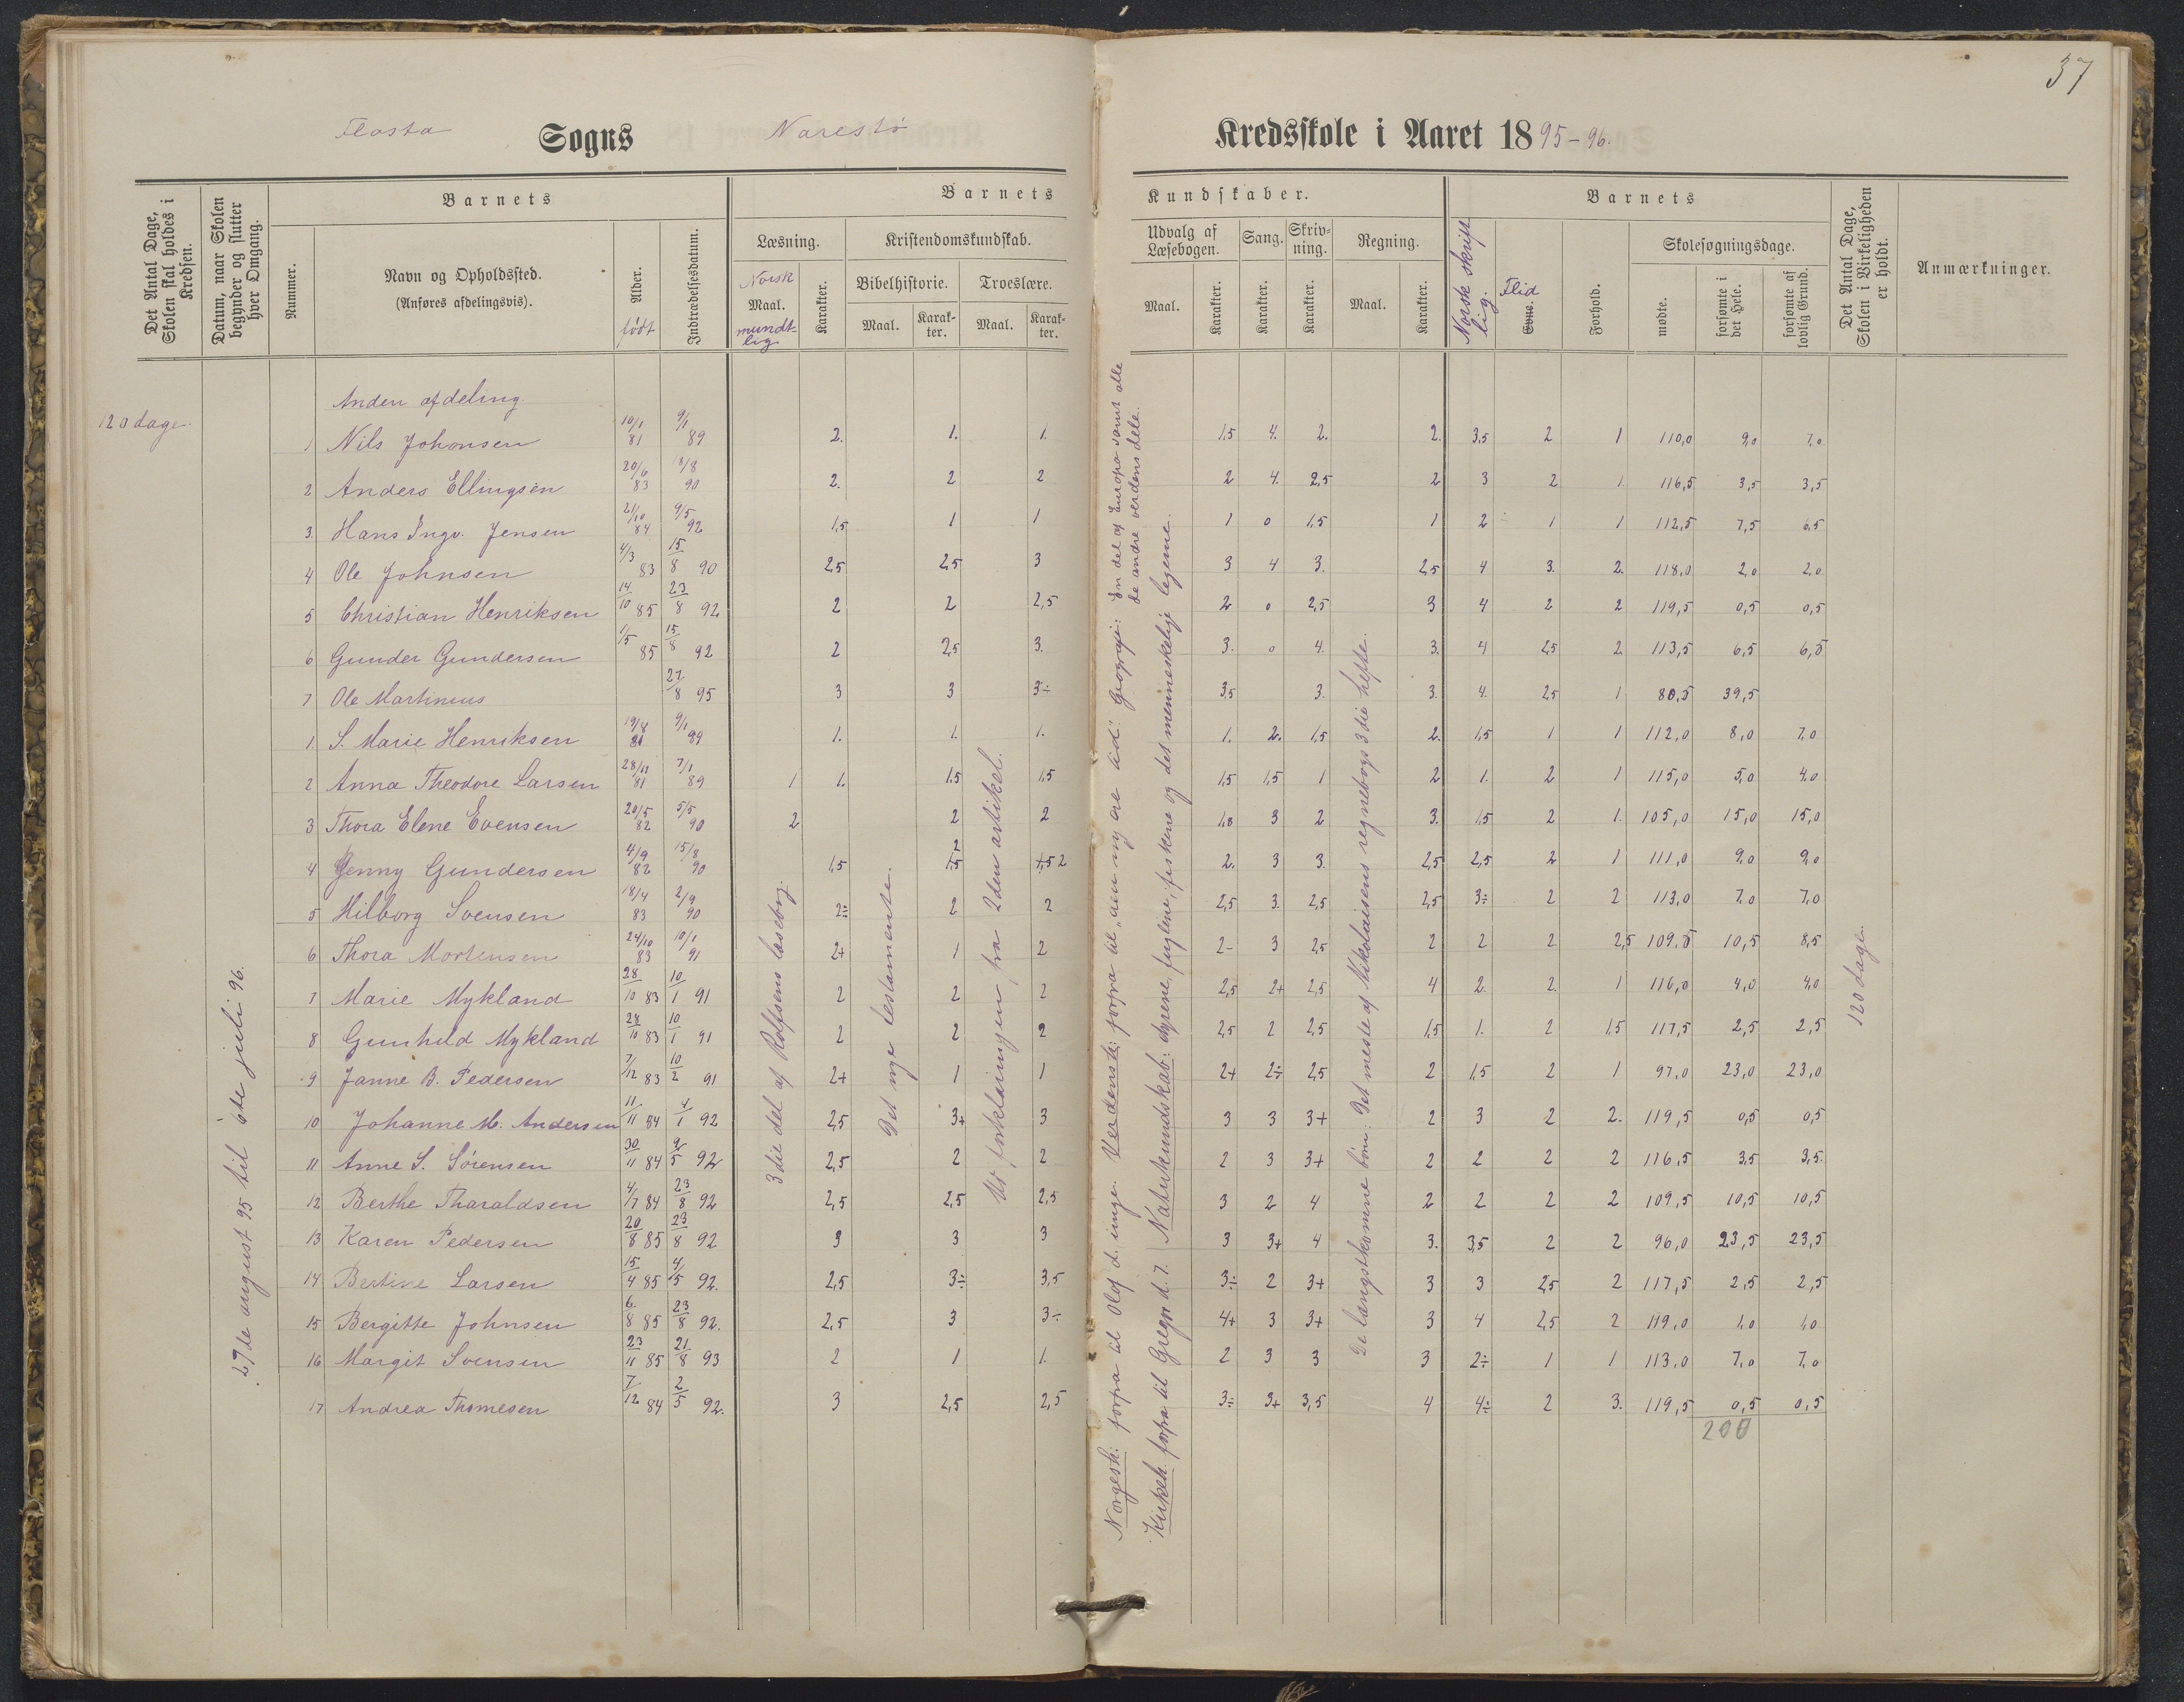 37
Flosta Sogns Narestø Kredsskole i Aaret 1895-96.
Det Antal Dage, Skolen skal holdes i Kredsen.
Datum, naar Skolen begynder og slutter hver Omgang.
Nummer.
Barnets
Navn og Opholdssted.
(Anføres afdelingsvis).
Alder.
født
Indtrædelsesdatum.
Barnets Kundskaber.
Læsning.
Norsk
Maal.
mundt-
lig
Karakter.
Kristendomskundskab.
Bibelhistorie.
Maal.
Karak-
ter.
Troeslære.
Maal.
Karak-
ter.
Udvalg af
Læsebogen.
Maal.
Karakter.
Sang.
Karakter.
Skriv-
ning.
Karakter.
Regning.
Maal.
Karakter.
Barnets
Norsk skrift
lig.
Flid
Evne.
Forhold.
Skolesøgningsdage.
mødte.
forsømte i
det Hele.
forsømte af
lovlig Grund.
Det Antal Dage,
Skolen i Virkeligheden
er holdt.
Anmærkninger.
120 dage.
27de august 95 til 6te juli 96.
Anden afdeling
1 Nils Johansen 10/1 81 9/1 89 2. 1. 1. 1,5 4. 2. 2. 3,5 2 1 110,0 9,0 7,0
2 Anders Ellingsen 20/6 83 18/8 90 2. 2 2 2 4. 2,5 2 3 2 1. 116,5 3,5 3,5
3. Hans Ingv. Jensen 21/10 84 9/5 92 1,5 1 1 1 0 1,5 1 2÷ 1 1 112,5 7,5 6,5
4 Ole Johnsen 4/3 83 15/8 90 2,5 2,5 3 3 4 3. 2,5 4 3. 2. 118,0 2,0 2,0
5 Christian Henriksen 14/10 85 23/8 92 2 2 2,5 2 0 2,5 3 4 2 2 119,5 0,5 0,5
6 Gunder Gundersen 1/5 85 15/8 92 2 2,5 3. 3. 0 4. 3. 4 2,5 2. 113,5 6,5 6,5
7 Ole Martinius 27/8 95 3 3 3÷ 3,5 3. 3. 4. 2,5 1 80,5 39,5
1. S. Marie Henriksen 19/8 81 9/1 89 1. 1. 1. 1. 2. 1,5 2. 1,5 1 1 112,0 8,0 7,0
2 Anna Theodore Larsen 28/11 81 7/1 89 1 1. 1,5 1,5 1,5 1,5 1 2 1. 2 1 115,0 5,0 4,0
3 Thora Elene Evensen 20/5 82 5/5 90 2 2 2 1,8 3 2 3. 1,5 2 1. 105,0 15,0 15,0
4 Jenny Gundersen 4/9 82 15/8 90 1,5 1,5 1,5 2 2. 3 3. 2,5 2,5 2 1 111,0 9,0 9,0
5 Hilborg Svensen 18/4 83 2/9 90 2÷ 2 2 2,5 3. 2,5 2,5 3÷ 2 2 113,0 7,0 7,0
6 Thora Mortensen 24/10 83 10/1 91 2+ 1 2 2- 3 2,5 2 2 2 2,5 109,5 10,5 8,5
7 Marie Mykland 28/10 83 10/1 91 2 2 2 2,5 2+ 2,5 4 2. 2. 1 116,0 4,0 4,0
8 Gunhild Mykland 28/10 83 10/1 91 2 2 2 2,5 2 2,5 1,5 1. 2 1,5 117,5 2,5 2,5
9 Janne B. Pedersen 7/12 83 10/2 91 2+ 1 1 2+ 2÷ 2,5 2 1,5 2 1 97,0 23,0 23,0
10 Johanne M. Andersen 11/11 84 4/1 92 2,5 3+ 3 3 3 3+ 2 3 2 2. 119,5 0,5 0,5
11 Anne S. Sørensen 30/11 84 9/5 92 2,5 2 2 2 3 3+ 2 2 2 2 116,5 3,5 3,5.
12 Berthe Tharaldsen 4/7 84 23/8 92 2,5 2,5 2,5 3 2 4 2 2 2 2 109,5 10,5 10,5
13 Karen Pedersen 20/8 85 23/8 92 3 3 3 3 3+ 4 3. 3,5 2 2 96,0 23,5 23,5
14 Bertine Larsen 15/4 85 4/5 92. 2,5 3÷ 3,5 3÷ 2 3+ 3 3 2,5 2 117,5 2,5 2,5
15 Bergitte Johnsen 6/8 85 23/8 92. 2,5 3 3÷ 4+ 3 3+ 3 4 2,5 2 119,0 1,0 1,0
16 Margit Svensen 23/11 85 21/8 93 2 1 1. 2 3 3 3 2÷ 1 1 113,0 7,0 7,0
17 Andrea Thomesen 7/12 84 2/5 92. 3 2,5 2,5 3÷ 3+ 3,5 4 4÷ 2 3. 119,5 0,5 0,5
200
3die del af Rolfsens læsebog.
Det nye testamente.
Av forklaringen, fra 2den artikel.
Norgesh: forfra til Olaf d. unge. Verdensh: forfra til "den nye tid: Geografi: En del af Europa samt alle
de andre verdens dele.
Kirkeh. forfra til Gregor d. 7. Naturkundskab: dyrene, fuglene, fiskene og det menneskelige legeme.
De længstkomne børn: Det meste af Nikolaisens regnebogs 3die hefte.
120 dage.